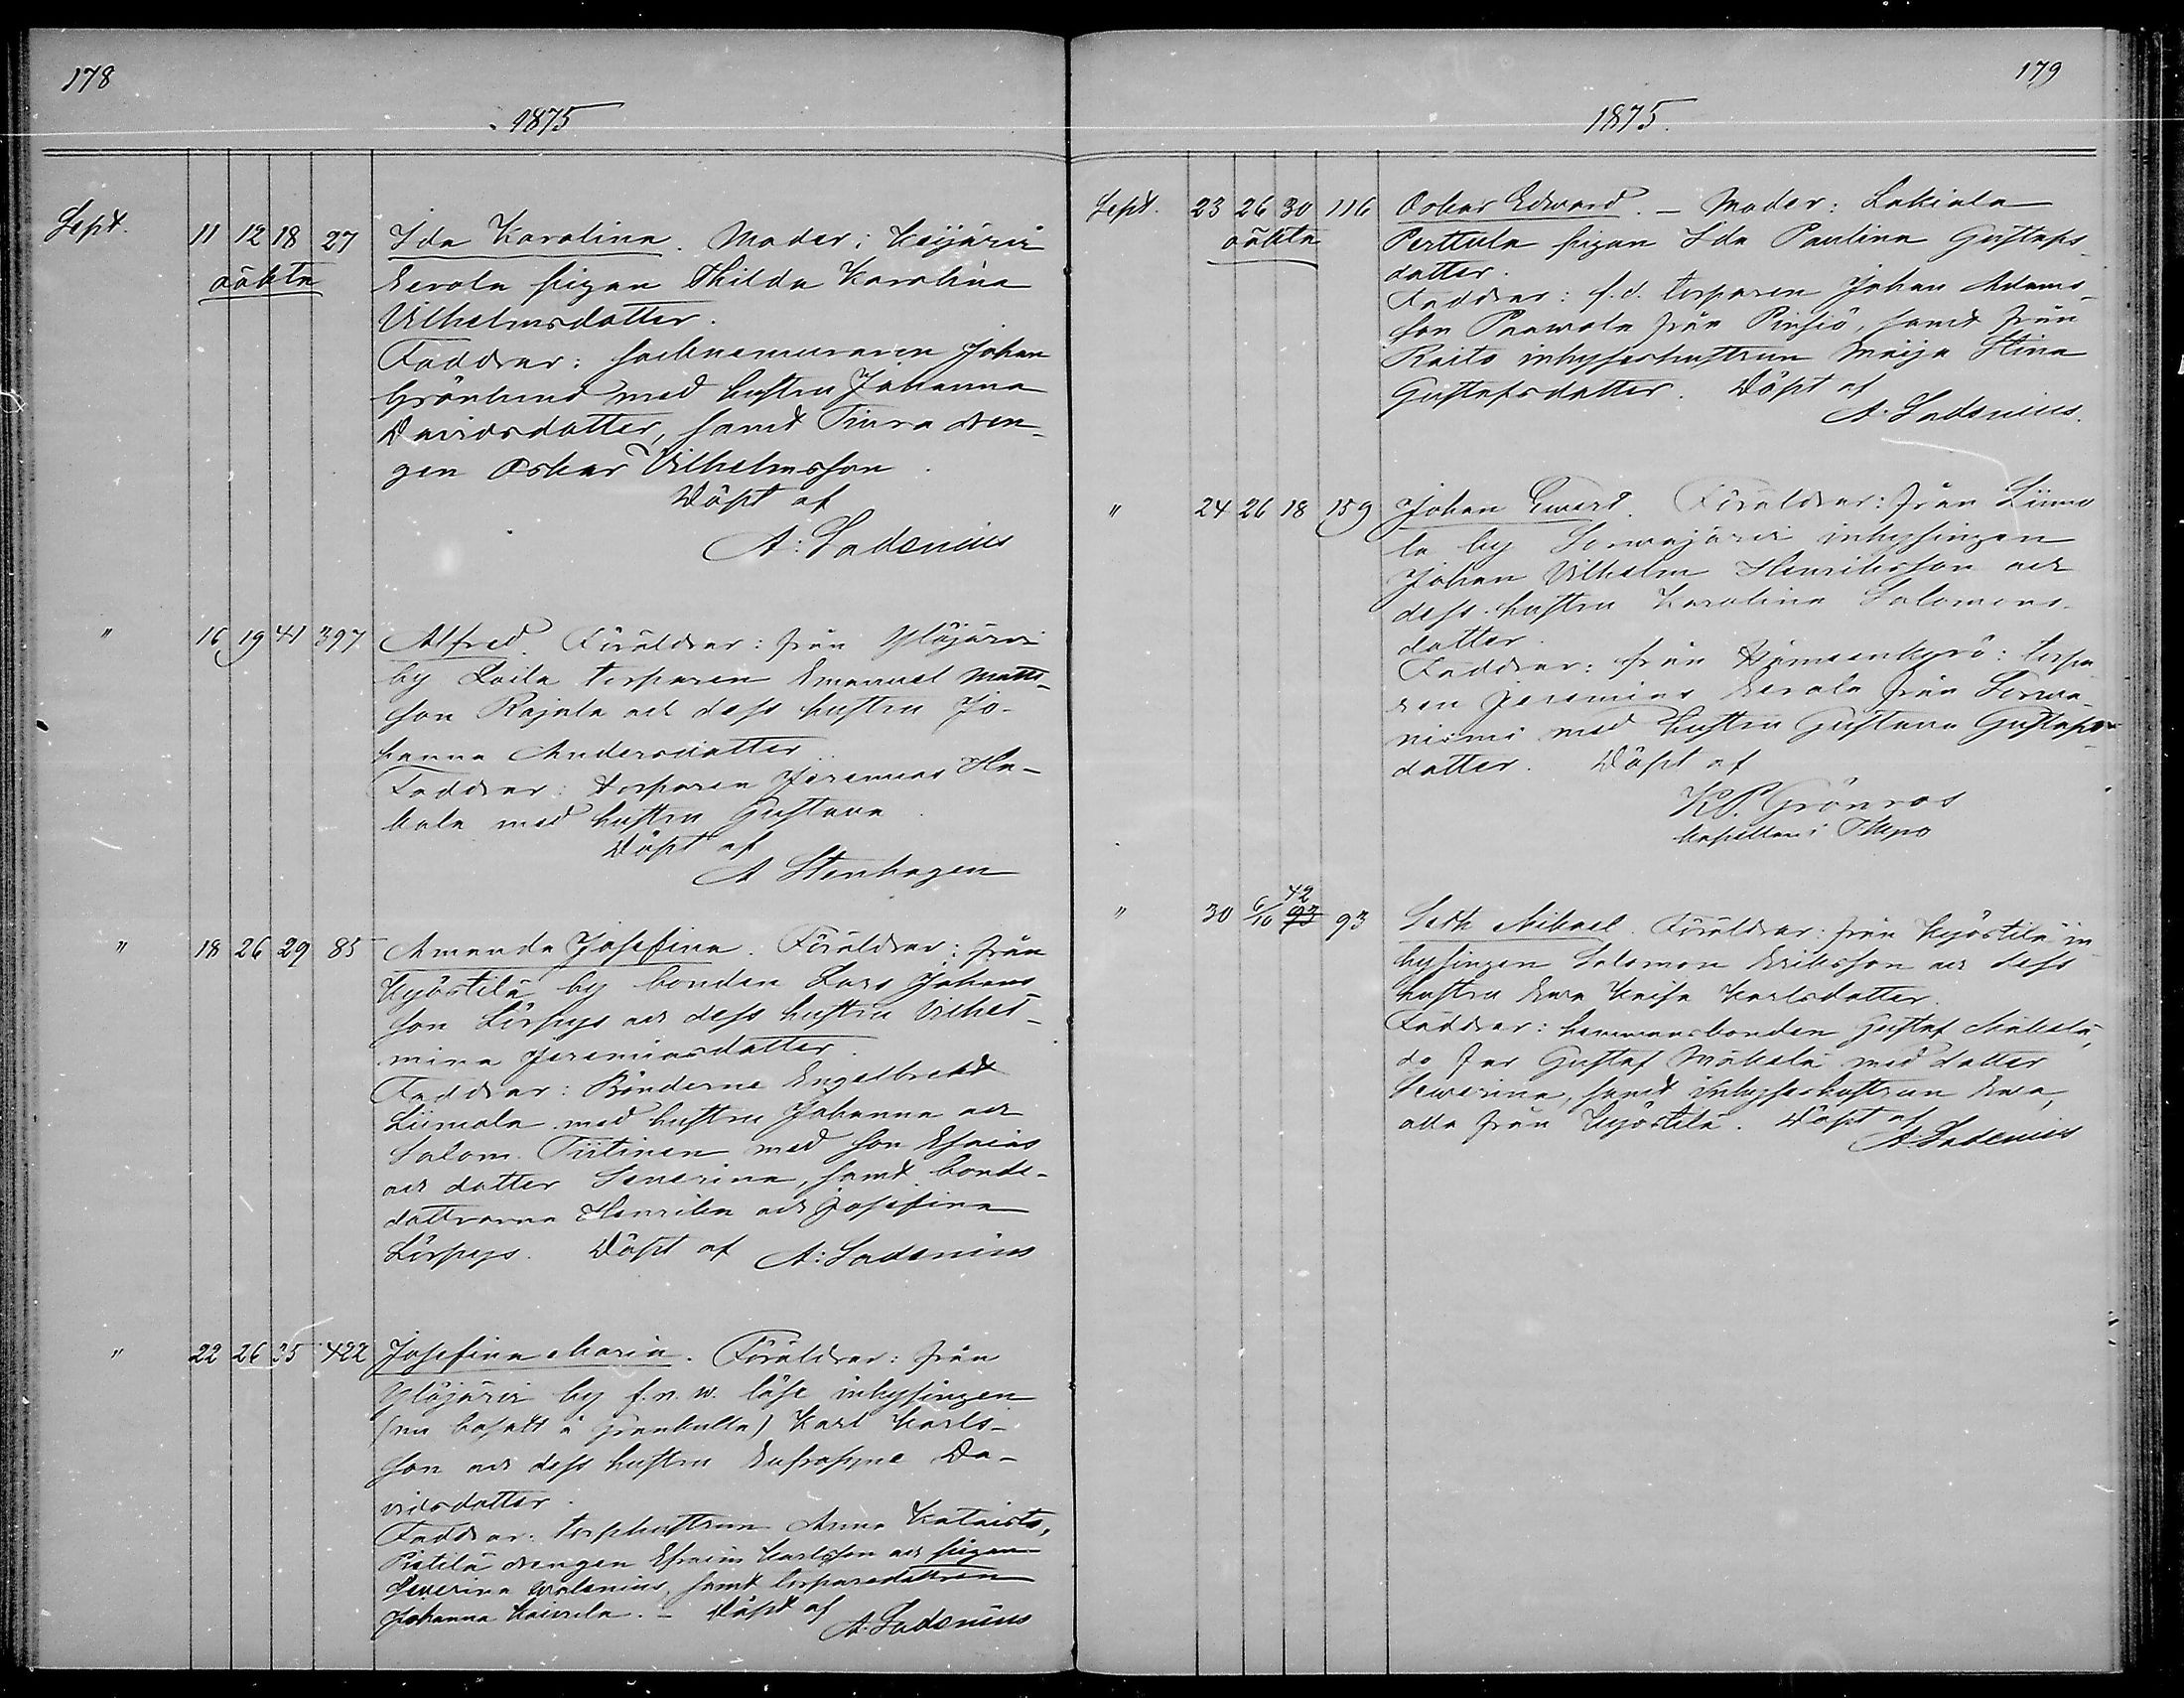 178
1875
Sept. 11 12 18 27 Ida Karolina. Moder: Keijärvi
oäkta Eerola pigan Thilda Karolina
Vilhelmsdotter.
Faddrar: Johan
Grönlund med hustru Johanna
Davidsdotter, samt Tiura dren-
gen Oskar Vilhelmsson.
Döpt af
A: Ladenius
" 16 19 41 397 Alfred. Föräldrar: från Ylöjärvi
by Laila torparen Emanuel Matts-
son Rajala och dess hustru Jo-
hanna Andersdotter.
Faddrar: torparen Jeremias Ha-
kala med hustru Gustava.
Döpt af
A Stenhagen
" 18 26 29 85 Amanda Josefina. Föräldrar: från
Kyöstilä by bonden Lars Johans-
son Lörpys och dess hustru Vilhel-
mina Jeremiasdotter.
Faddrar: Bönderne Engelbrekt
Liimola med hustru Johanna och
Salom. Tiitinen med son Esaias
och dotter Severina, samt bonde-
dottrarna Henrika och Josefina
Lörpys. Döpt af A: Ladenius
" 22 26 35 422 Josefina Maria. Föräldrar: från
Ylöjärvi by f.n.w. löse inhysingen
(nu bosatt å Grankulla) Karl Karls-
son och dess hustru Eufrosyne Da-
vidsdotter.
Faddrar: torphustrun Anna Kataisto,
Pietilä drengen Efraim Karlsson och pigan
Severina, samt torparedottren
Johanna Kaivela. – Döpt af
A. Ladenius
179
1875.
Sept. 23 26 30 116 Oskar Edward. – Moder: Lakiala
oäkta Perttula pigan Ida Paulina Gustafs-
dotter.
Faddrar: f.d. torparen Johan Adams-
son Paawola från Pinsiö, samt från
Raito inhyseshustrun Maija Stina
Gustafsdotter. Döpt af
A. Ladenius.
" 24 26 18 159 Johan Evert. Föräldrar: från Liimo
la by Sorwajärvi inhysingen
Johan Vilhelm Henriksson och
dess hustru Karolina Salomons-
dotter.
Faddrar: från Hämeenkyrö: torpa
ren Jeremias Eerola från Sorwa-
niemi med hustru Gustava Gustafs-
dotter. Döpt af
K.P. Grönros
kapellan i
" 30 6/10 42 93 93 Seth Mikael. Föräldrar: från Kyöstilä in
hysingen Salomon Eriksson och dess
hustru Eva Kaisa Karlsdotter.
Faddrar: hemmansbonden Gustaf Mäkelä,
do far Gustaf Mäkelä med dotter
Severina, samt inhyseshustrun Eva,
alla från Kyöstilä. Döpt af
A. Ladenius